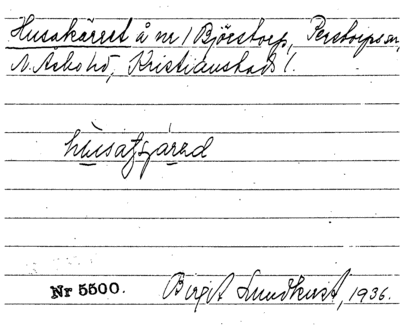 Husakärret å nr 1 Björstorp, Perstorps sn,
N. Åsbo hd, Kristianstads l.
Nr 5500. Birgit Lundkvist, 1936.